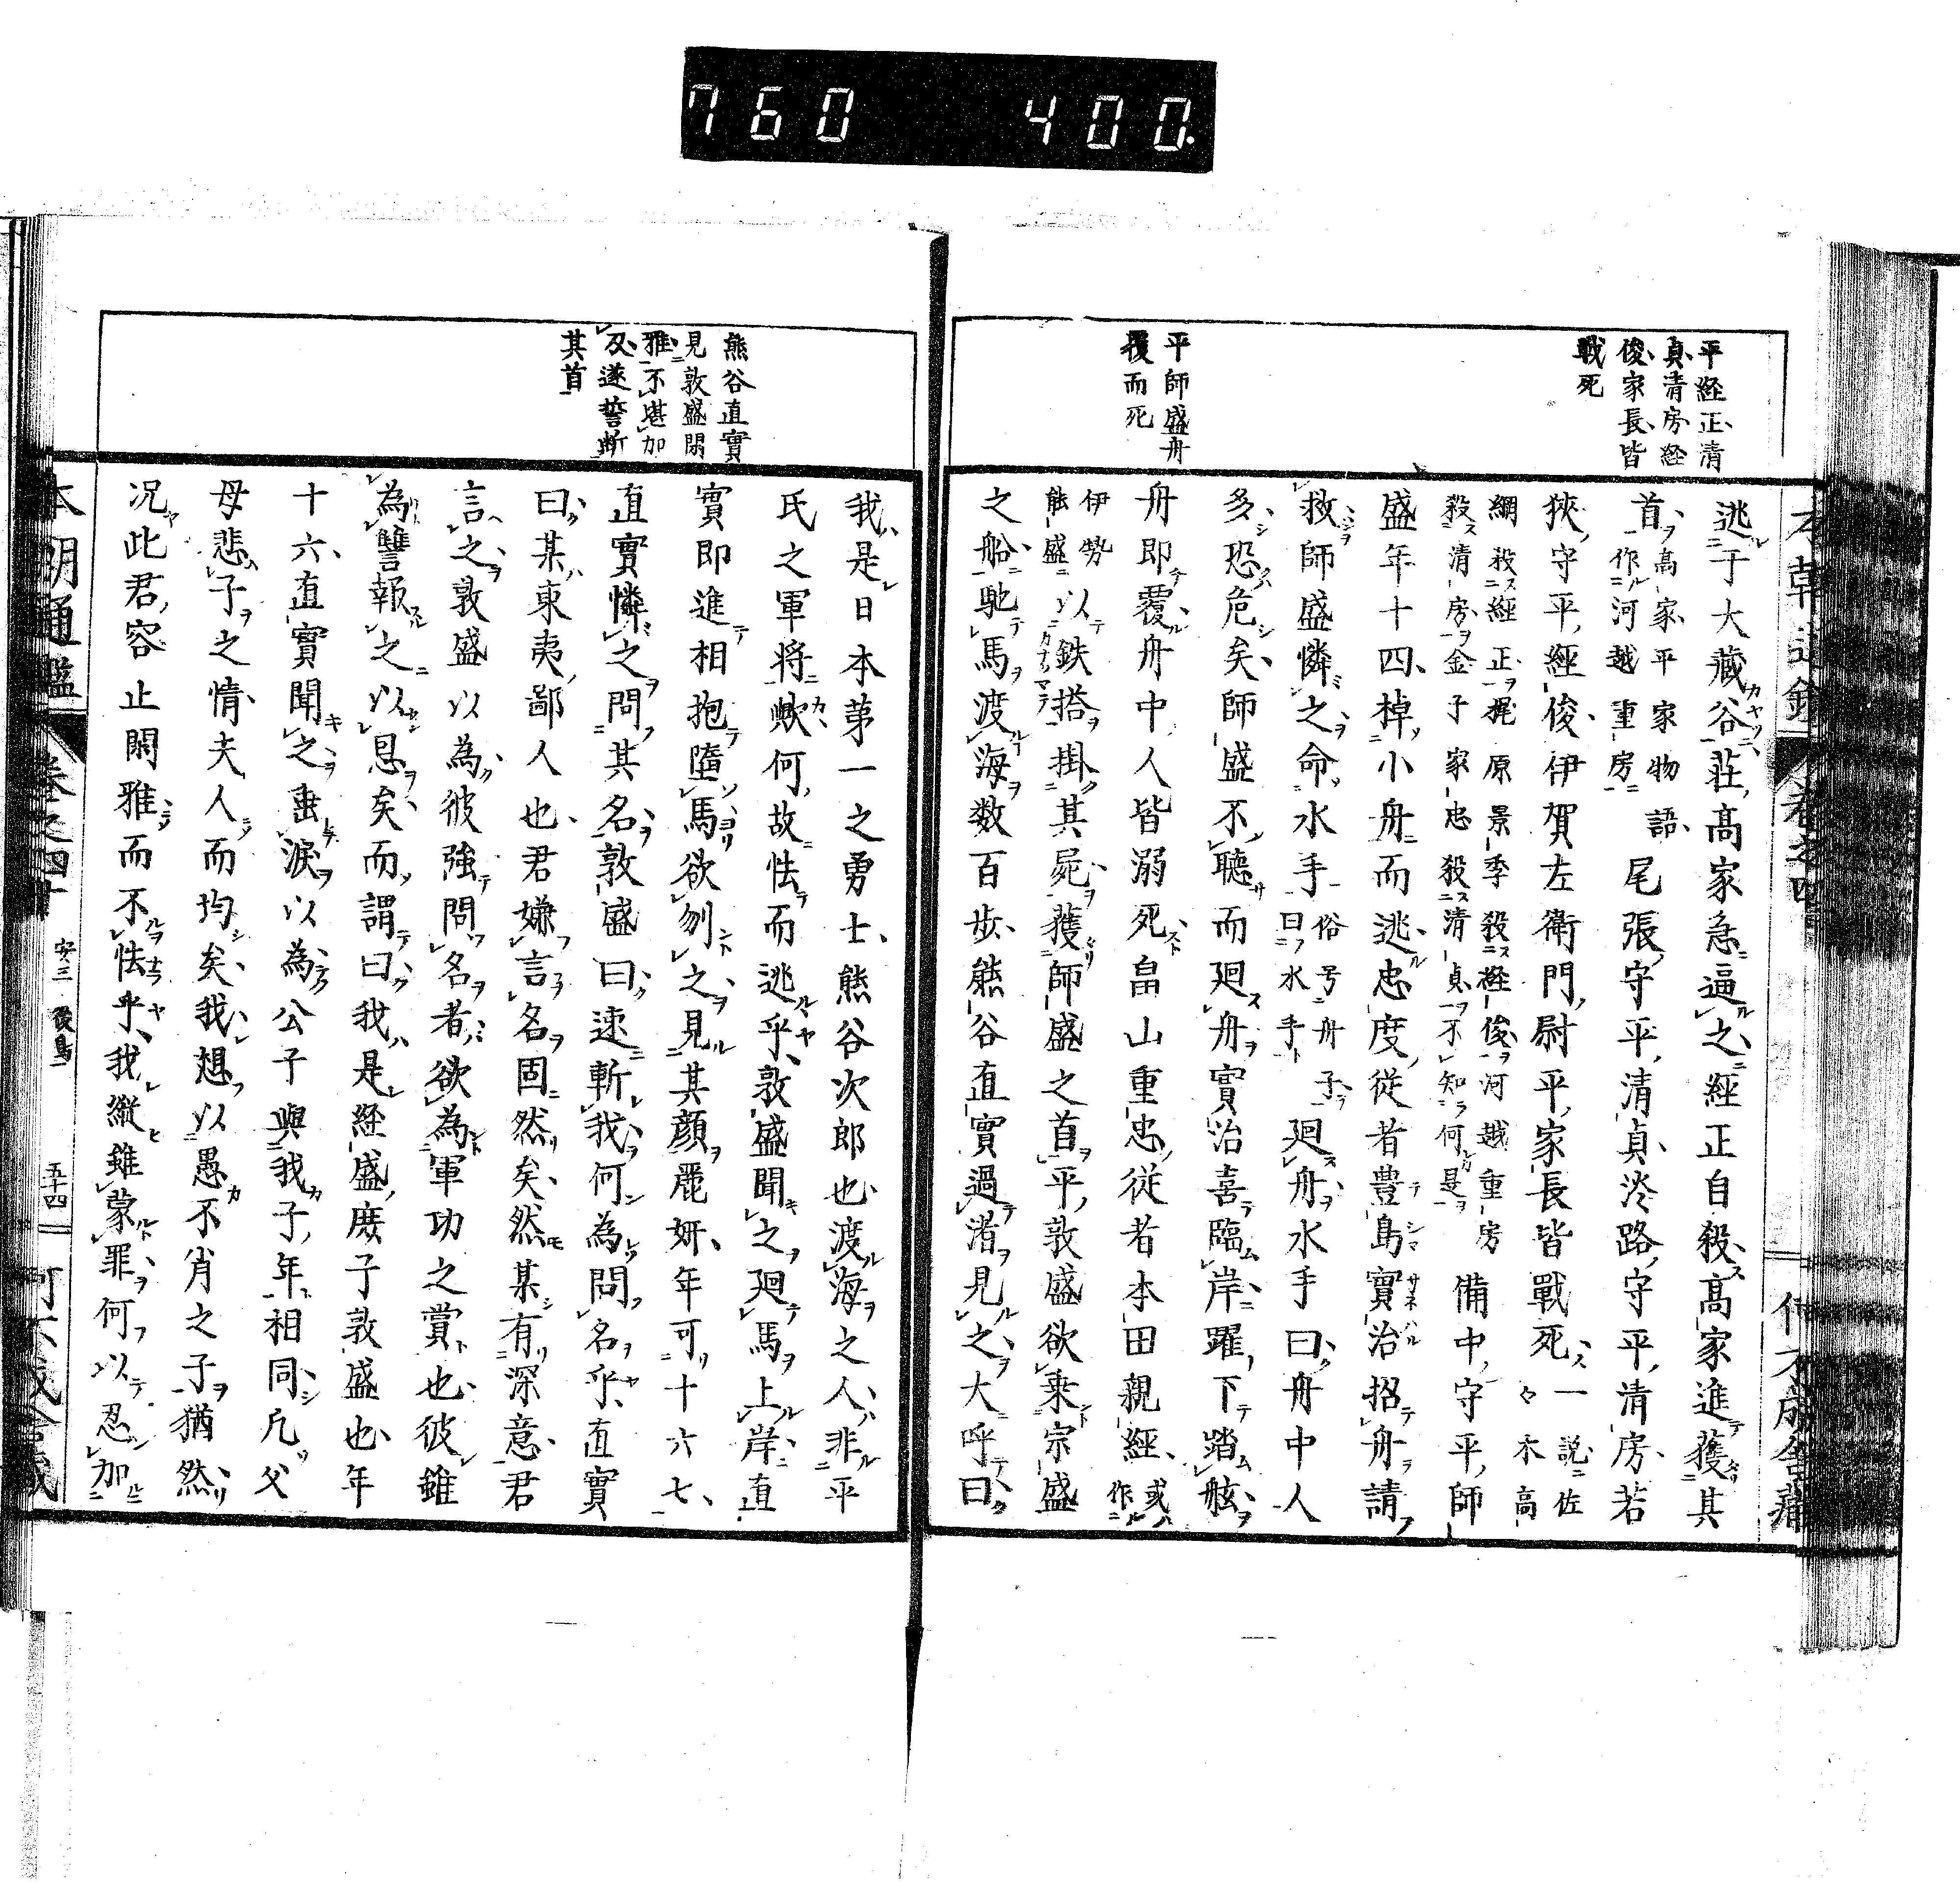 760 400.
平経正清
貞清房経
俊家長皆
戰死
平師盛舟
覆而死
逃于大藏谷莊高家急逼之經正自殺高家進獲其
首高家平家物語
作河越重房
尾張守平清貞淡路守平清房若
狹守平經俊伊賀左衛門尉平家長皆戰死一說佐
々木高
綱殺經正梶原景季殺経俊河越重房
殺清房金子家忠殺清貞不知何是
備中守平師
盛年十四棹小舟而逃忠度從者豊島實治招舟請
救師盛憐之命水手俗号舟子
曰水手
廻舟水手曰舟中人
多恐危矣師盛不聽而廻舟實治喜臨岸躍下踏舷
舟即覆舟中人皆溺死畠山重忠從者本田親經或
作
伊勢
能盛
以鉄搭掛其屍獲師盛之首平敦盛欲乗宗盛
之船馳馬渡海数百步熊谷直實過渚見之大呼曰
熊谷直實
見敦盛閑
雅不堪加
刄遂誓斷
其首
我是日本第一之勇士熊谷次郎也渡海之人非平
氏之軍将歟何故怯而逃乎敦盛聞之廻馬上岸直
實即進相抱墮馬欲刎之見其顔麗姸年可十六七
直實憐之問其名敦盛曰速斬我何為問名乎直實
曰某東夷鄙人也君嫌言名固然矣然某有深意君
言之敦盛以為彼強問名者欲為軍功之賞也彼雖
為讐報之以恩矣而謂曰我是経盛庶子敦盛也年
十六直實聞之垂涙以為公子與我子年相同凢父
母悲子之情夫人而均矣我想以愚不肖之子猶然
况此君容止閑雅而不怯乎我縱雖蒙罪何以忍加
本朝通鑑 卷之四十 安三 後鳥一 五十四